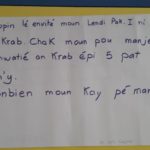 opin lé envité moun Lendi Pak. I ni
Krab Chak moun pou manjé
nwatié on Krab épi 5 pat
n'y.
onbien moun Kay pé man